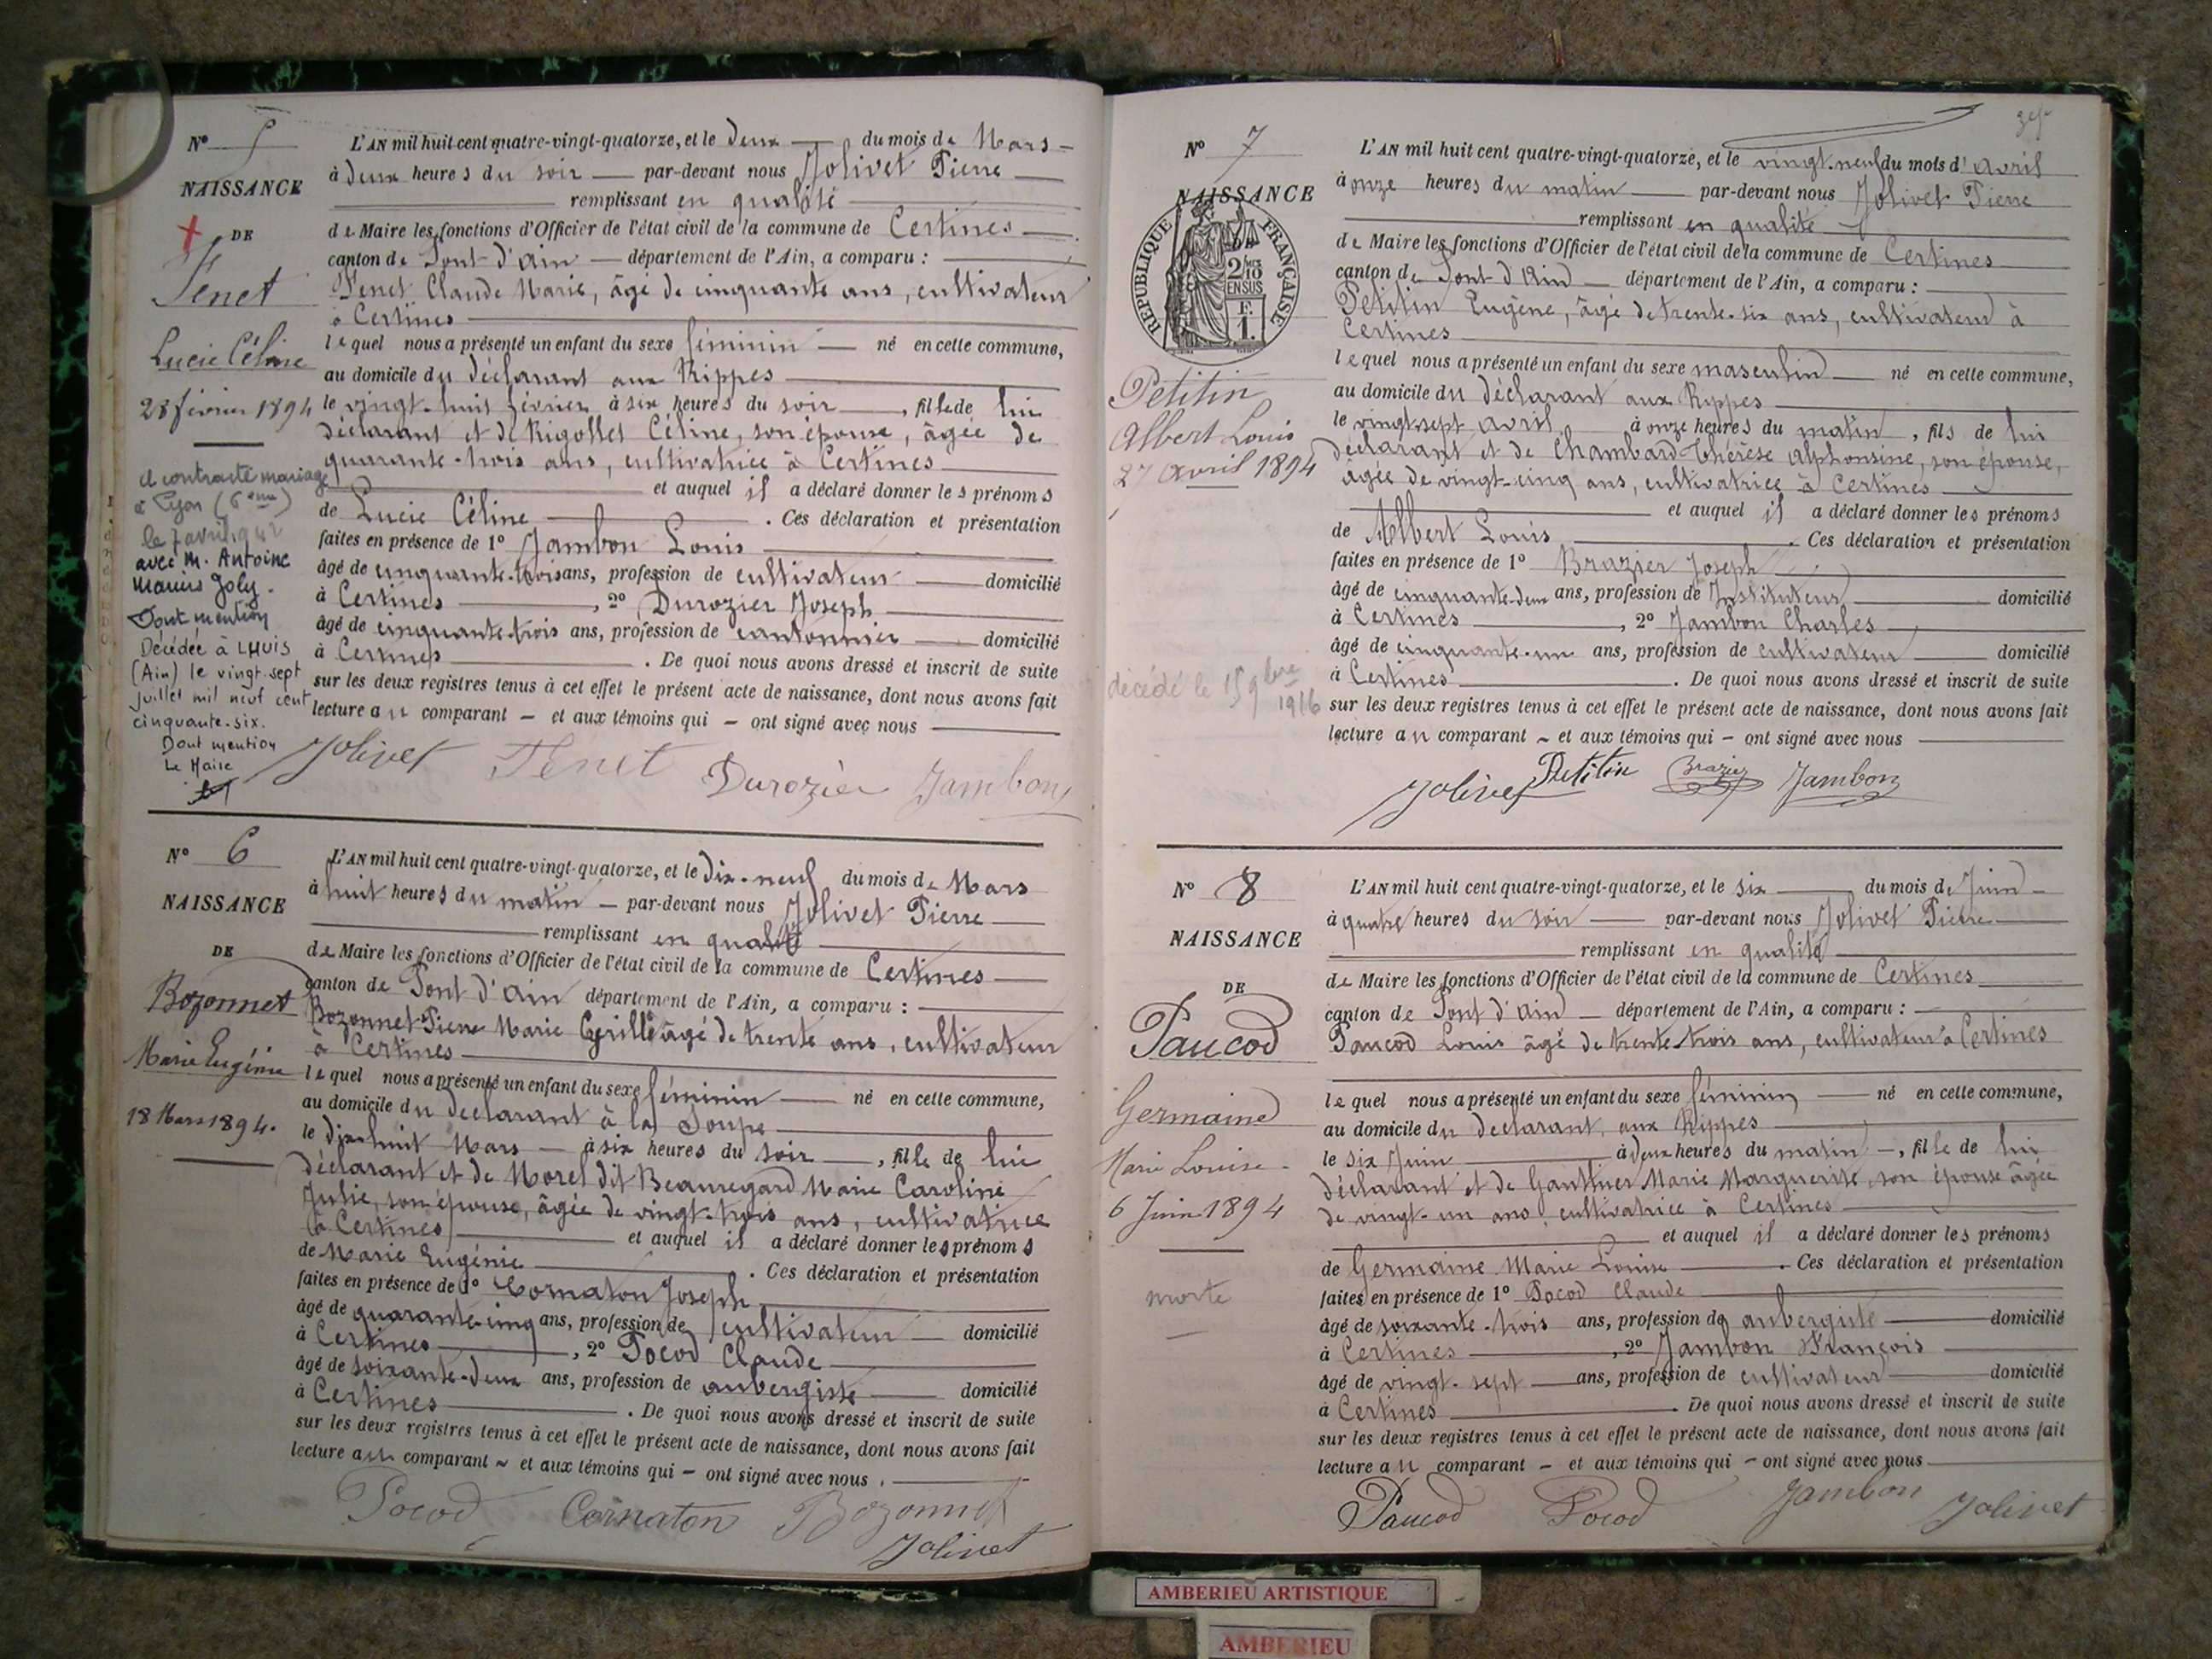 N° 5
NAISSANCE
DE
Tenet
Lucie Céline
28 février 1894
a contracté mariage
à Lyon (6ème)
le 7 avril 1942
avec M. Antoine
Marius Joly.
Dont mention
Décédée à LHUIS
(Ain) le vingt-sept
juillet mil neuf cent
cinquante-six.
Dont mention
Le Maire
L'AN mil huit cent quatre-vingt-quatorze, et le deux du mois de Mars
à deux heures du soir par-devant nous Jolivet Pierre
remplissant en qualité
de Maire les fonctions d'Officier de l'état civil de la commune de Certines
canton de Pont-d'ain département de l'Ain, a comparu :
Tenet Claude Marie, âgé de cinquante ans, cultivateur
à Certines
lequel nous a présenté un enfant du sexe féminin né en cette commune,
au domicile du déclarant aux Rippes
le vingt-huit février à six heures du soir, fille de lui
déclarant et de Rigollet Céline, son épouse, âgée de
quarante-trois ans, cultivatrice à Certines
et auquel il a déclaré donner les prénoms
de Lucie Céline. Ces déclaration et présentation
faites en présence de 1° Jambon Louis
âgé de cinquante-trois ans, profession de cultivateur domicilié
à Certines, 2° Durozier Joseph
âgé de cinquante-trois ans, profession de cantonnier domicilié
à Certines. De quoi nous avons dressé et inscrit de suite
sur les deux registres tenus à cet effet le présent acte de naissance, dont nous avons fait
lecture au comparant – et aux témoins qui – ont signé avec nous
Jolivet Tenet Durozier Jambon
N° 6
NAISSANCE
DE
Bozonnet
Marie Eugénie
18 Mars 1894.
L'AN mil huit cent quatre-vingt-quatorze, et le dix-neuf du mois de Mars
à huit heures du matin – par-devant nous Jolivet Pierre
remplissant en qualité
de Maire les fonctions d'Officier de l'état civil de la commune de Certines
canton de Pont d'ain département de l'Ain, a comparu :
Bozonnet Pierre Marie Cyrille âgé de trente ans, cultivateur
à Certines
lequel nous a présenté un enfant du sexe féminin né en cette commune,
au domicile du déclarant à la Soupe
le dix-huit Mars à six heures du soir, fille de lui
déclarant et de Morel dit Beauregard Marie Caroline
Julie, son épouse, âgée de vingt-trois ans, cultivatrice
à Certines
et auquel il a déclaré donner les prénoms
de Marie Eugénie. Ces déclaration et présentation
faites en présence de 1° Cornaton Joseph
âgé de quarante-cinq ans, profession de cultivateur domicilié
à Certines, 2° Pocod Claude
âgé de soixante-deux ans, profession de aubergiste domicilié
à Certines. De quoi nous avons dressé et inscrit de suite
sur les deux registres tenus à cet effet le présent acte de naissance, dont nous avons fait
lecture au comparant – et aux témoins qui – ont signé avec nous.
Pocod Cornaton Bozonnet
Jolivet
N° 7
NAISSANCE
DE
RÉPUBLIQUE FRANÇAISE
2/10 EN SUS
F. 1.
Petitin
Albert Louis
27 avril 1894
décédé le 15 9bre
1916
L'AN mil huit cent quatre-vingt-quatorze, et le vingt-neuf du mois d'avril
à onze heures du matin par-devant nous Jolivet Pierre
remplissant en qualité
de Maire les fonctions d'Officier de l'état civil de la commune de Certines
canton de Pont d'Ain département de l'Ain, a comparu :
Petitin Eugène, âgé de trente-six ans, cultivateur à
Certines
lequel nous a présenté un enfant du sexe masculin né en cette commune,
au domicile du déclarant aux Rippes
le vingt-sept avril à onze heures du matin, fils de lui
déclarant et de Chambard Thérèse Alphonsine, son épouse,
âgée de vingt-cinq ans, cultivatrice à Certines
et auquel il a déclaré donner les prénoms
de Albert Louis. Ces déclaration et présentation
faites en présence de 1° Brazier Joseph
âgé de cinquante-deux ans, profession de Instituteur domicilié
à Certines, 2° Jambon Charles
âgé de cinquante-un ans, profession de cultivateur domicilié
à Certines. De quoi nous avons dressé et inscrit de suite
sur les deux registres tenus à cet effet le présent acte de naissance, dont nous avons fait
lecture au comparant – et aux témoins qui – ont signé avec nous
Jolivet Petitin Brazier Jambon
N° 8
NAISSANCE
DE
Paucod
Germaine
Marie Louise
6 Juin 1894
morte
L'AN mil huit cent quatre-vingt-quatorze, et le six du mois de Juin
à quatre heures du soir par-devant nous Jolivet Pierre
remplissant en qualité
de Maire les fonctions d'Officier de l'état civil de la commune de Certines
canton de Pont d'ain département de l'Ain, a comparu :
Paucod Louis âgé de trente-trois ans, cultivateur à Certines
lequel nous a présenté un enfant du sexe féminin né en cette commune,
au domicile du déclarant, aux Rippes
le six Juin à deux heures du matin, fille de lui
déclarant et de Gauthier Marie Marguerite, son épouse âgée
de vingt-un ans, cultivatrice à Certines
et auquel il a déclaré donner les prénoms
de Germaine Marie Louise. Ces déclaration et présentation
faites en présence de 1° Pocod Claude
âgé de soixante-trois ans, profession de aubergiste domicilié
à Certines, 2° Jambon François
âgé de vingt-sept ans, profession de cultivateur domicilié
à Certines. De quoi nous avons dressé et inscrit de suite
sur les deux registres tenus à cet effet le présent acte de naissance, dont nous avons fait
lecture au comparant – et aux témoins qui – ont signé avec nous
Paucod Pocod Jambon Jolivet
AMBERIEU ARTISTIQUE
AMBERIEU